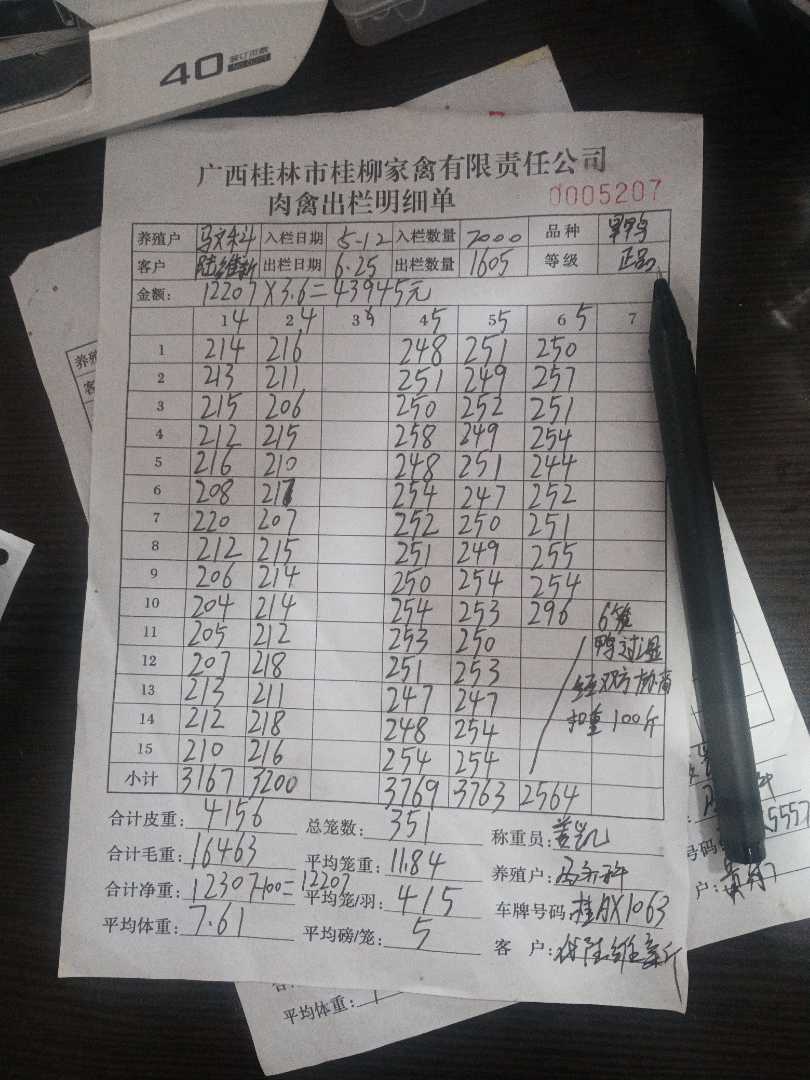 40 装订页数
广西桂林市桂柳家禽有限责任公司
肉禽出栏明细单 0005207
养殖户 入栏日期 5-12 入栏数量 7000 品种 旱鸭
客户 陆维新 出栏日期 6.25 出栏数量 1605 等级 正品
金额: 12207×3.6=43945元
1 4 2 4 3 4 5 5 5 6 5 7
1 214 216 248 251 250
2 213 211 251 249 257
3 215 206 250 252 251
4 212 215 258 249 254
5 216 210 248 251 244
6 208 217 254 247 252
7 220 207 252 250 251
8 212 215 251 249 255
9 206 214 250 254 254
10 204 214 254 253 296 6笼
11 205 212 253 250 鸭过湿
12 207 218 251 253 经双方协商
13 213 211 247 247 扣重100斤
14 212 218 248 254
15 210 216 254 254
小计 3167 3200 3769 3763 2564
合计皮重: 4156 总笼数: 351 称重员: 凯
合计毛重: 16463 平均笼重: 11.84 养殖户:
合计净重: 12307-100=12207 平均笼/羽: 4/5 车牌号码: 桂AX1063
平均体重: 7.61 平均磅/笼: 5 客 户: 陆维新
养殖
客
号码
户:
平均体重: